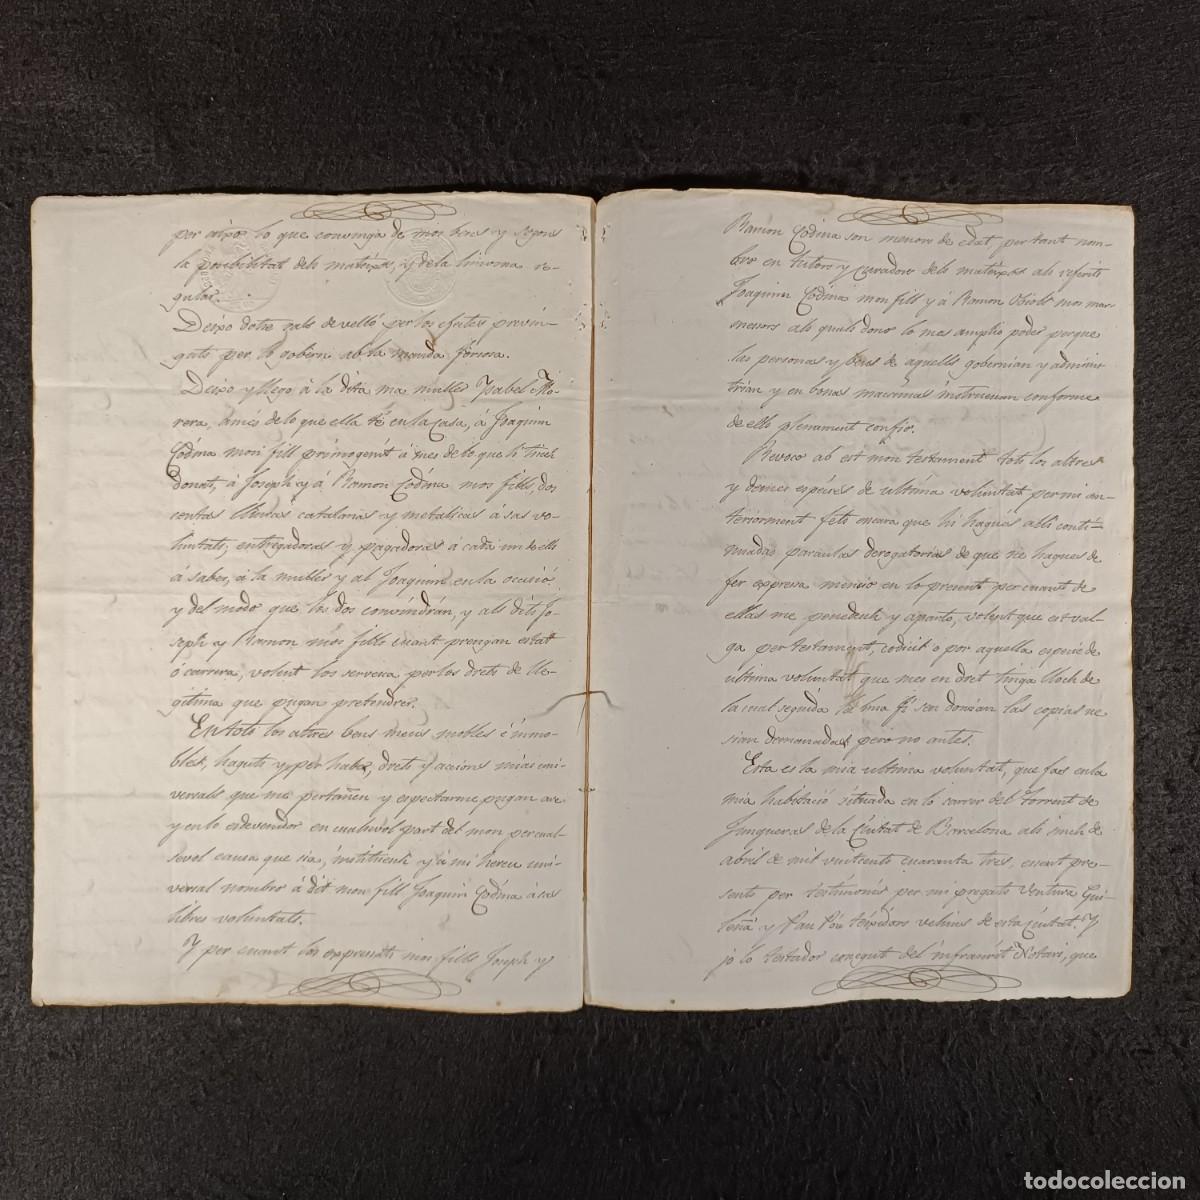 per aixo lo que convinga de mos bens y segons
la posibilitat dels mateixos, y de la limosna re-
gular.
Deixo dotse rals de velló per los efectes previn-
guts per lo gobern ab la manda forsosa.
Deixo y llego á la dita ma muller Ysabel Mo-
rera, á mes de lo que ella té en la Casa, á Joaquim
Codina mon fill primogenit á mes de lo que li tinch
donat, á Joseph y á Ramon Codina mos fills, dos
centas lliuras catalanas y metalicas á sas vo-
luntats, entregadoras y pagadoras á cada un de ells
á saber, á la muller y al Joaquim en la ocasió
y del modo que los dos convindrán, y als dits Jo-
seph y Ramon mos fills cuant prengan estat
ó carrera, volent los servesca per los drets de lle-
gitima que pugan pretendrer.
En tots los altres bens meus mobles é immo-
bles, haguts y per haber, drets y accions mias uni-
versals que me pertañen y espectarme pugan ara
y en lo esdevenidor en cualsevol part del mon per cual-
sevol causa que sia, instituesch y á mi hereu uni-
versal nombro á dit mon fill Joaquim Codina á sas
llibres voluntats.
Y per cuant los expresats mos fills Joseph y
Ramon Codina son menors de edat, per tant nom-
bro en tutors y curadors dels mateixos als referits
Joaquim Codina mon fill y á Ramon Obiols mos mar-
mesors als quals dono lo mes amplio poder perque
las personas y bens de aquells gobernian y adminis-
trian y en bonas maximas instruescan conforme
de ells plenament confio.
Revoco ab est mon testament tots los altres
y demes especies de ultima voluntat per mi an-
teriorment fets encara que hi hagues ells conti-
nuadas paraulas derogatorias de que ne hagues de
fer expresa menció en lo present per cuant de
ellas me penedesch y aparto, volent que est val-
ga per testament, codicil o per aquella especie de
ultima voluntat que mes en dret tinga lloch de
la cual seguida la mia fi sen donian las copias ne
sian demanadas pero no antes.
Esta es la mia ultima voluntat, que fas en la
mia habitació situada en lo carrer del Torrent de
Junqueras de la Ciutat de Barcelona als sinch de
abril de mil vuitcents cuaranta tres, essent pre-
sents per testimonis per mi pregats Ventura Gui-
tera y Pau Pos teixidors velers de esta Ciutat. Y
jo lo testador conegut del infrascrit Notari, que
todocoleccion